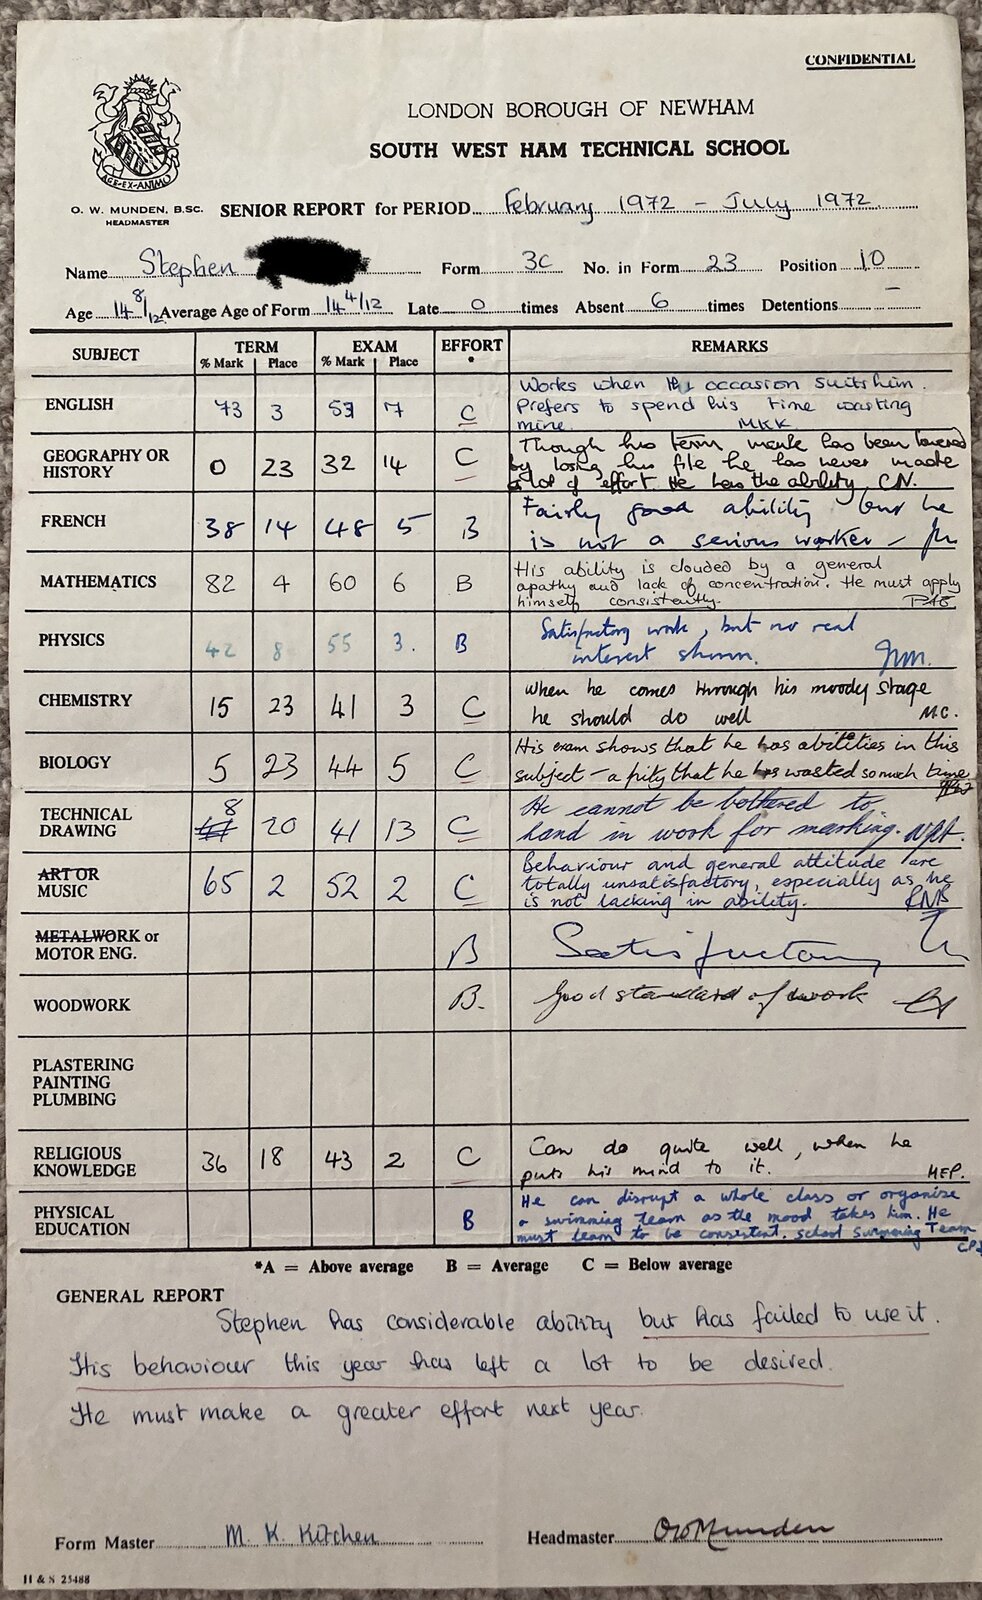 CONFIDENTIAL
LONDON BOROUGH OF NEWHAM
SOUTH WEST HAM TECHNICAL SCHOOL
AGE-EX-ANIMO
O. W. MUNDEN, B.SC.
HEADMASTER
SENIOR REPORT for PERIOD February 1972 - July 1972
Name Stephen Form 3C No. in Form 23 Position 10
Age 14 8/12 Average Age of Form 14 4/12 Late 0 times Absent 6 times Detentions –
SUBJECT TERM EXAM EFFORT REMARKS
% Mark Place % Mark Place *
ENGLISH 73 3 57 7 C
Works when the occasion suits him.
Prefers to spend his time wasting
mine. MKK
GEOGRAPHY OR
HISTORY 0 23 32 14 C
Though his term mark has been lowered
by losing his file he has never made
a lot of effort. He has the ability. CN.
FRENCH 38 14 48 5 B
Fairly good ability but he
is not a serious worker –
MATHEMATICS 82 4 60 6 B
His ability is clouded by a general
apathy and lack of concentration. He must apply
himself consistently.
PHYSICS 42 8 55 3. B
Satisfactory work, but no real
interest shown.
CHEMISTRY 15 23 41 3 C
When he comes through his moody stage
he should do well M.C.
BIOLOGY 5 23 44 5 C
His exam shows that he has abilities in this
subject – a pity that he has wasted so much time
TECHNICAL
DRAWING 8 20 41 13 C
He cannot be bothered to
hand in work for marking.
ART OR
MUSIC 65 2 52 2 C
Behaviour and general attitude are
totally unsatisfactory, especially as he
is not lacking in ability. RNB
METALWORK or
MOTOR ENG. B Satisfactory
WOODWORK B. Good standard of work
PLASTERING
PAINTING
PLUMBING
RELIGIOUS
KNOWLEDGE 36 18 43 2 C
Can do quite well, when he
puts his mind to it. HEP.
PHYSICAL
EDUCATION B
He can disrupt a whole class or organise
a swimming team as the mood takes him. He
must learn to be consistent. School Swimming Team
*A = Above average B = Average C = Below average
GENERAL REPORT
Stephen has considerable ability but has failed to use it.
His behaviour this year has left a lot to be desired.
He must make a greater effort next year.
Form Master M. K. Kitchen Headmaster OWMunden
H & S 25488